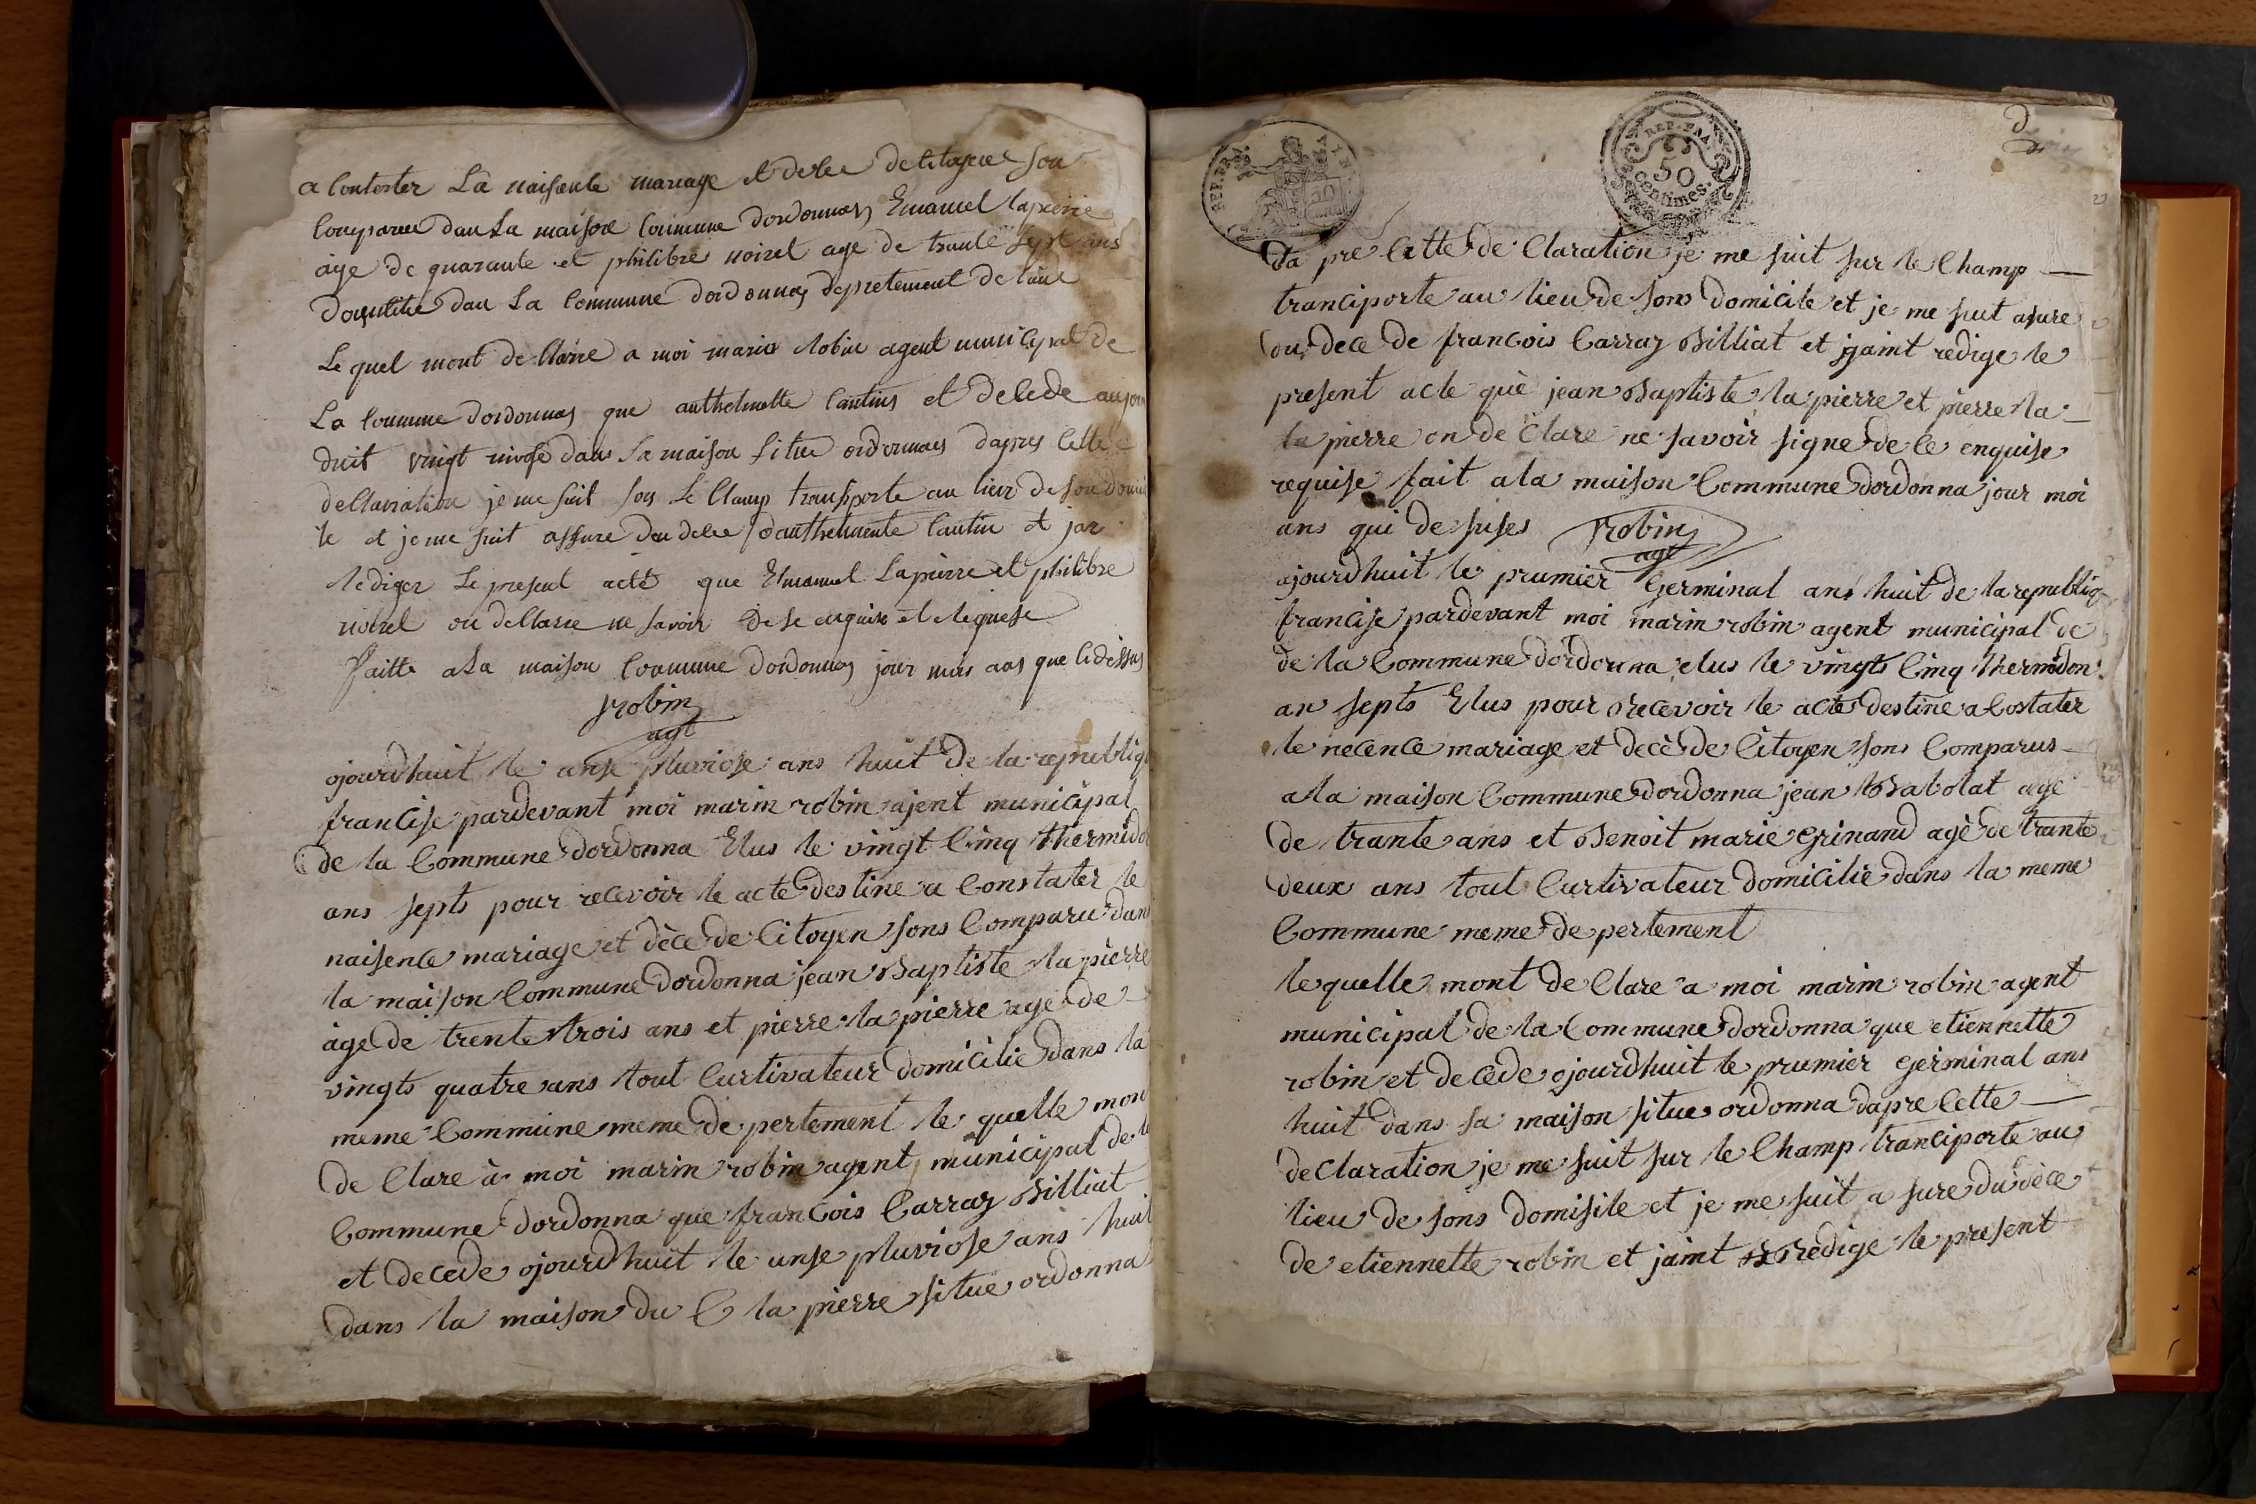 a Contester La naisante mariage et desee de citayen son
Comparue dan La maisone Commune dordonnas Emanuel lapierre
age de quarante et philibre noirel age de trante sept ans
domilie dan La Commune dordonnas depretement de lain
Le quel mont de Clarée a moi marin Robin agent municipal de
La Commune dordonnas que anthelmette Cantins et decede aujour
duit vingt nivose dans sa maison situe ordonnas dapres Cette
declaration je me suit sur Le Champ transporte au lieu de son domi
le et je me suit assure du dece danthelmente Cantin et jar
Rediger Le present acte que Emanuel Lapierre et philibre
noirel on declarie ne savoir de se enquise et requise
Faitte a La maison Commune dordonnas jour mis ans que cidessus
robin
agt
ojourdhuit le onse pluviose ans huit de la republiq
francise pardevant moi marin robin ajent municipal
de la Commune dordonna Elus le vingt Cinq thermido
ans septs pour recevoir le acte destine a Constater le
naisence mariage et dèce de Citoyen sons Comparu dans
la maison Commune dordonna jean Baptiste la pierre
âge de trente trois ans et pierre la pierre age de
vingts quatre ans tout Curtivateur domicilie dans la
meme Commune meme de pertement le quelle mon
de Clare à moi marin robin agent municipal de l
Commune dordonna que francois Carraz Billiat
et decede ojourdhuit le unse pluviose ans huit
dans la maison du C la pierre situe ordonna
50
REP. FRA.
50
centimes.
da pre Cette de Claration je me suit sur le Champ
tranciporte au lieu de sons domicile et je me suit asure
du dece de francois Carraz Billiat et jaint redige le
present acte que jean Baptiste la pierre et pierre la
la pierre on de Clare ne savoir signe de ce enquise
requise fait a la maison Commune dordonna jour moi
ans qui de suses robin
agt
ajourdhuit le prumier Germinal ans huit de la republiq
francise pardevant moi marin robin agent municipal de
de la Commune dordonna elus le vingts Cinq thermidon
an septs Elus pour recevoir le acte destine a Costater
le necence mariage et decè de Citoyen sons Comparus
a la maison Commune dordonna jean Babolat age
de trante ans et Benoit marie grinand agè de trante
deux ans tout Curtivateur domicilie dans la meme
Commune meme de pertement
le quelle mont de Clare a moi marin robin agent
municipal de la Commune dordonna que etiennette
robin et decede ojourdhuit le prumier germinal ans
huit dans sa maison situe ordonna dapre Cette
declaration je me suit sur le Champ tranciporte au
lieu de sons domisile et je me suit a sure du dèce
de etiennette robin et jaint redige le present